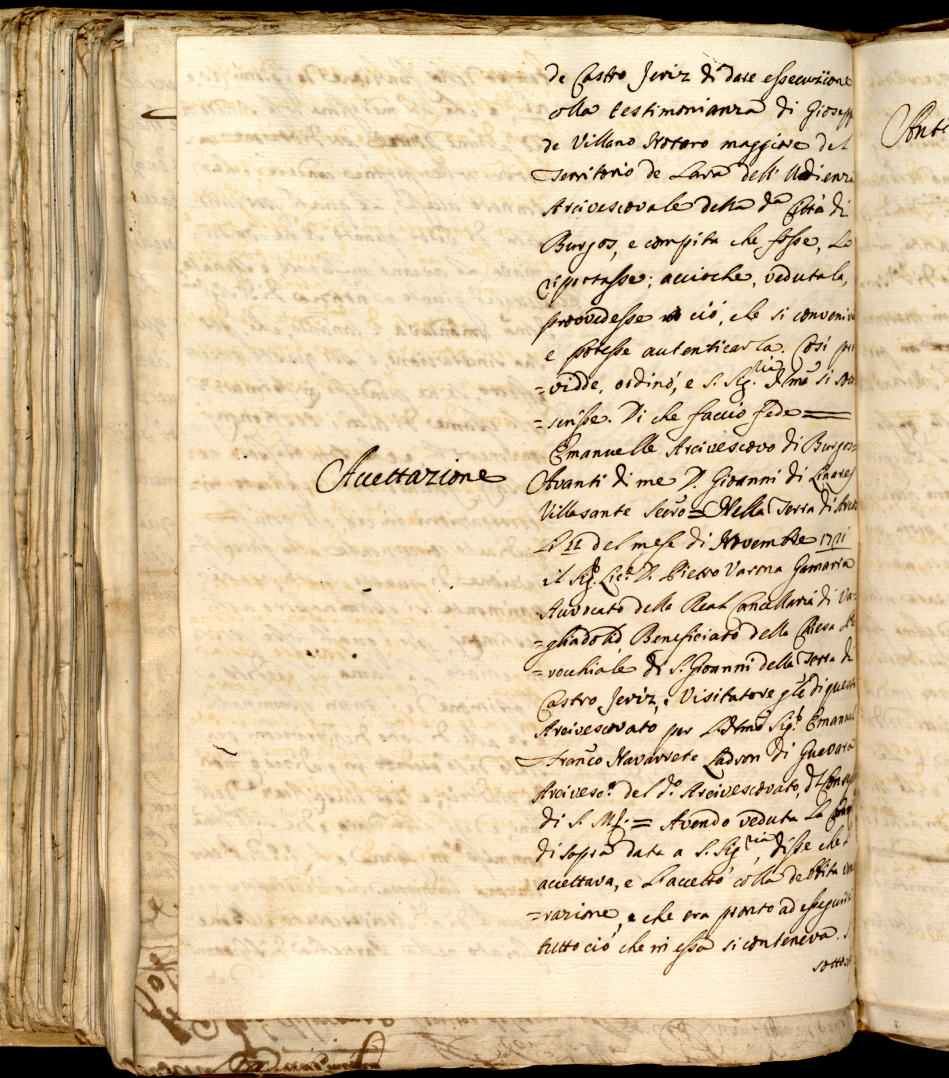 de Castro Jeriz di dare essecuzione
colla testimonianza di Giosepp
de Villano Notaro maggiore del
Territorio de Lara dell' Udienza
Arcivescovale della da Città di
Burgos, e compita che fosse, La
riportasse; acciòche, vedutala,
provvedesse ciò, che si conveniv
e potesse autenticarla. Così pro
=vidde, ordinò, e S. Sig.ria Illma si sotto
=scrisse. Di che faccio fede =
Emanuelle Arcivescovo di Burgos=
Accettazione
Avanti di me D. Giovanni di Linares
Villasante Secro = Nella Terra di
Li 11 del mese di Novembre 1721
il Sigr. Lico. D. Pietro Varona Gamarra
Avvocato della Real Cancellaria di Va=
=gliadolid Beneficiato della Chiesa Pa
=rocchiale di S. Gioanni della Terra di
Castro Jeriz, e Visitatore gle di questo
Arcivescovato per L'Illmo Sigr. Emanuel
Franco Navarrete Ladron di Guevara
Arcivesco. del do. Arcivescovato, del Consig
di S. M. = Avendo veduta La
di sopra data a S. Sigria, disse che l'
accettava, e L'accettò colla debbita ve
=razione, e che era pronto ad esseguire
tutto ciò che in essa si conteneva.
sottos
Anti